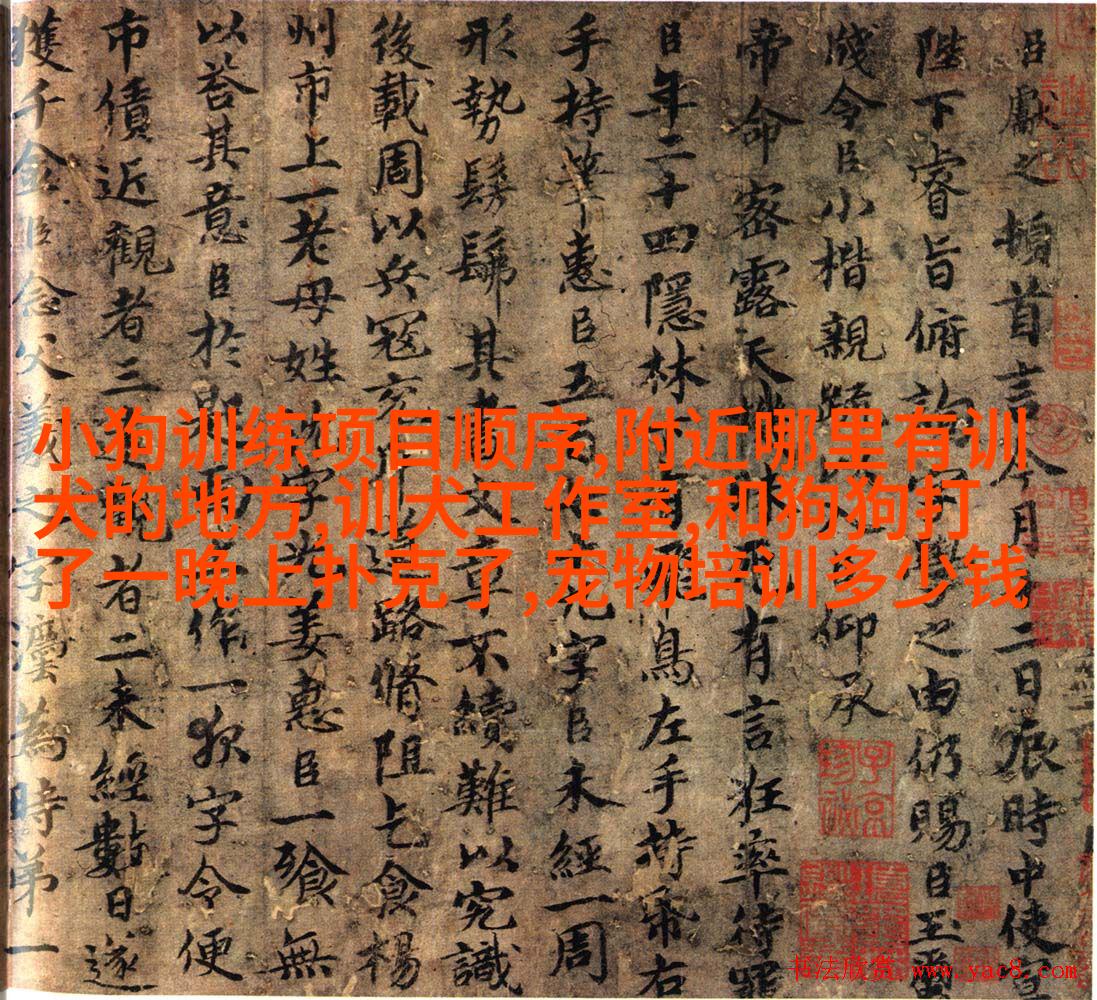 臣獻之頓首言今月二日辰時中使宣
陛下睿旨俯詢字學之由仍賜臣玉
成令臣小楷親仰承
帝命密露天有言狂率待罪
臣年二十四隱林有飛鳥左手持帋右
手持筆惠臣五百九字臣未經一周
形勢髣髴其文章不續難以究識
後載周以兵寇充道路脩阻乞食楊
州市上一老母姓字姜惠臣一飡無
以荅其意臣於作一夜字令便
市債近觀者三觀者二未經數日遂
獲千金臣念父羲之字法為時第一
小狗训练项目顺序,附近哪里有训
犬的地方,训犬工作室,和狗狗打
了一晚上扑克了,宠物培训多少钱
书法欣赏 www.yac8.com